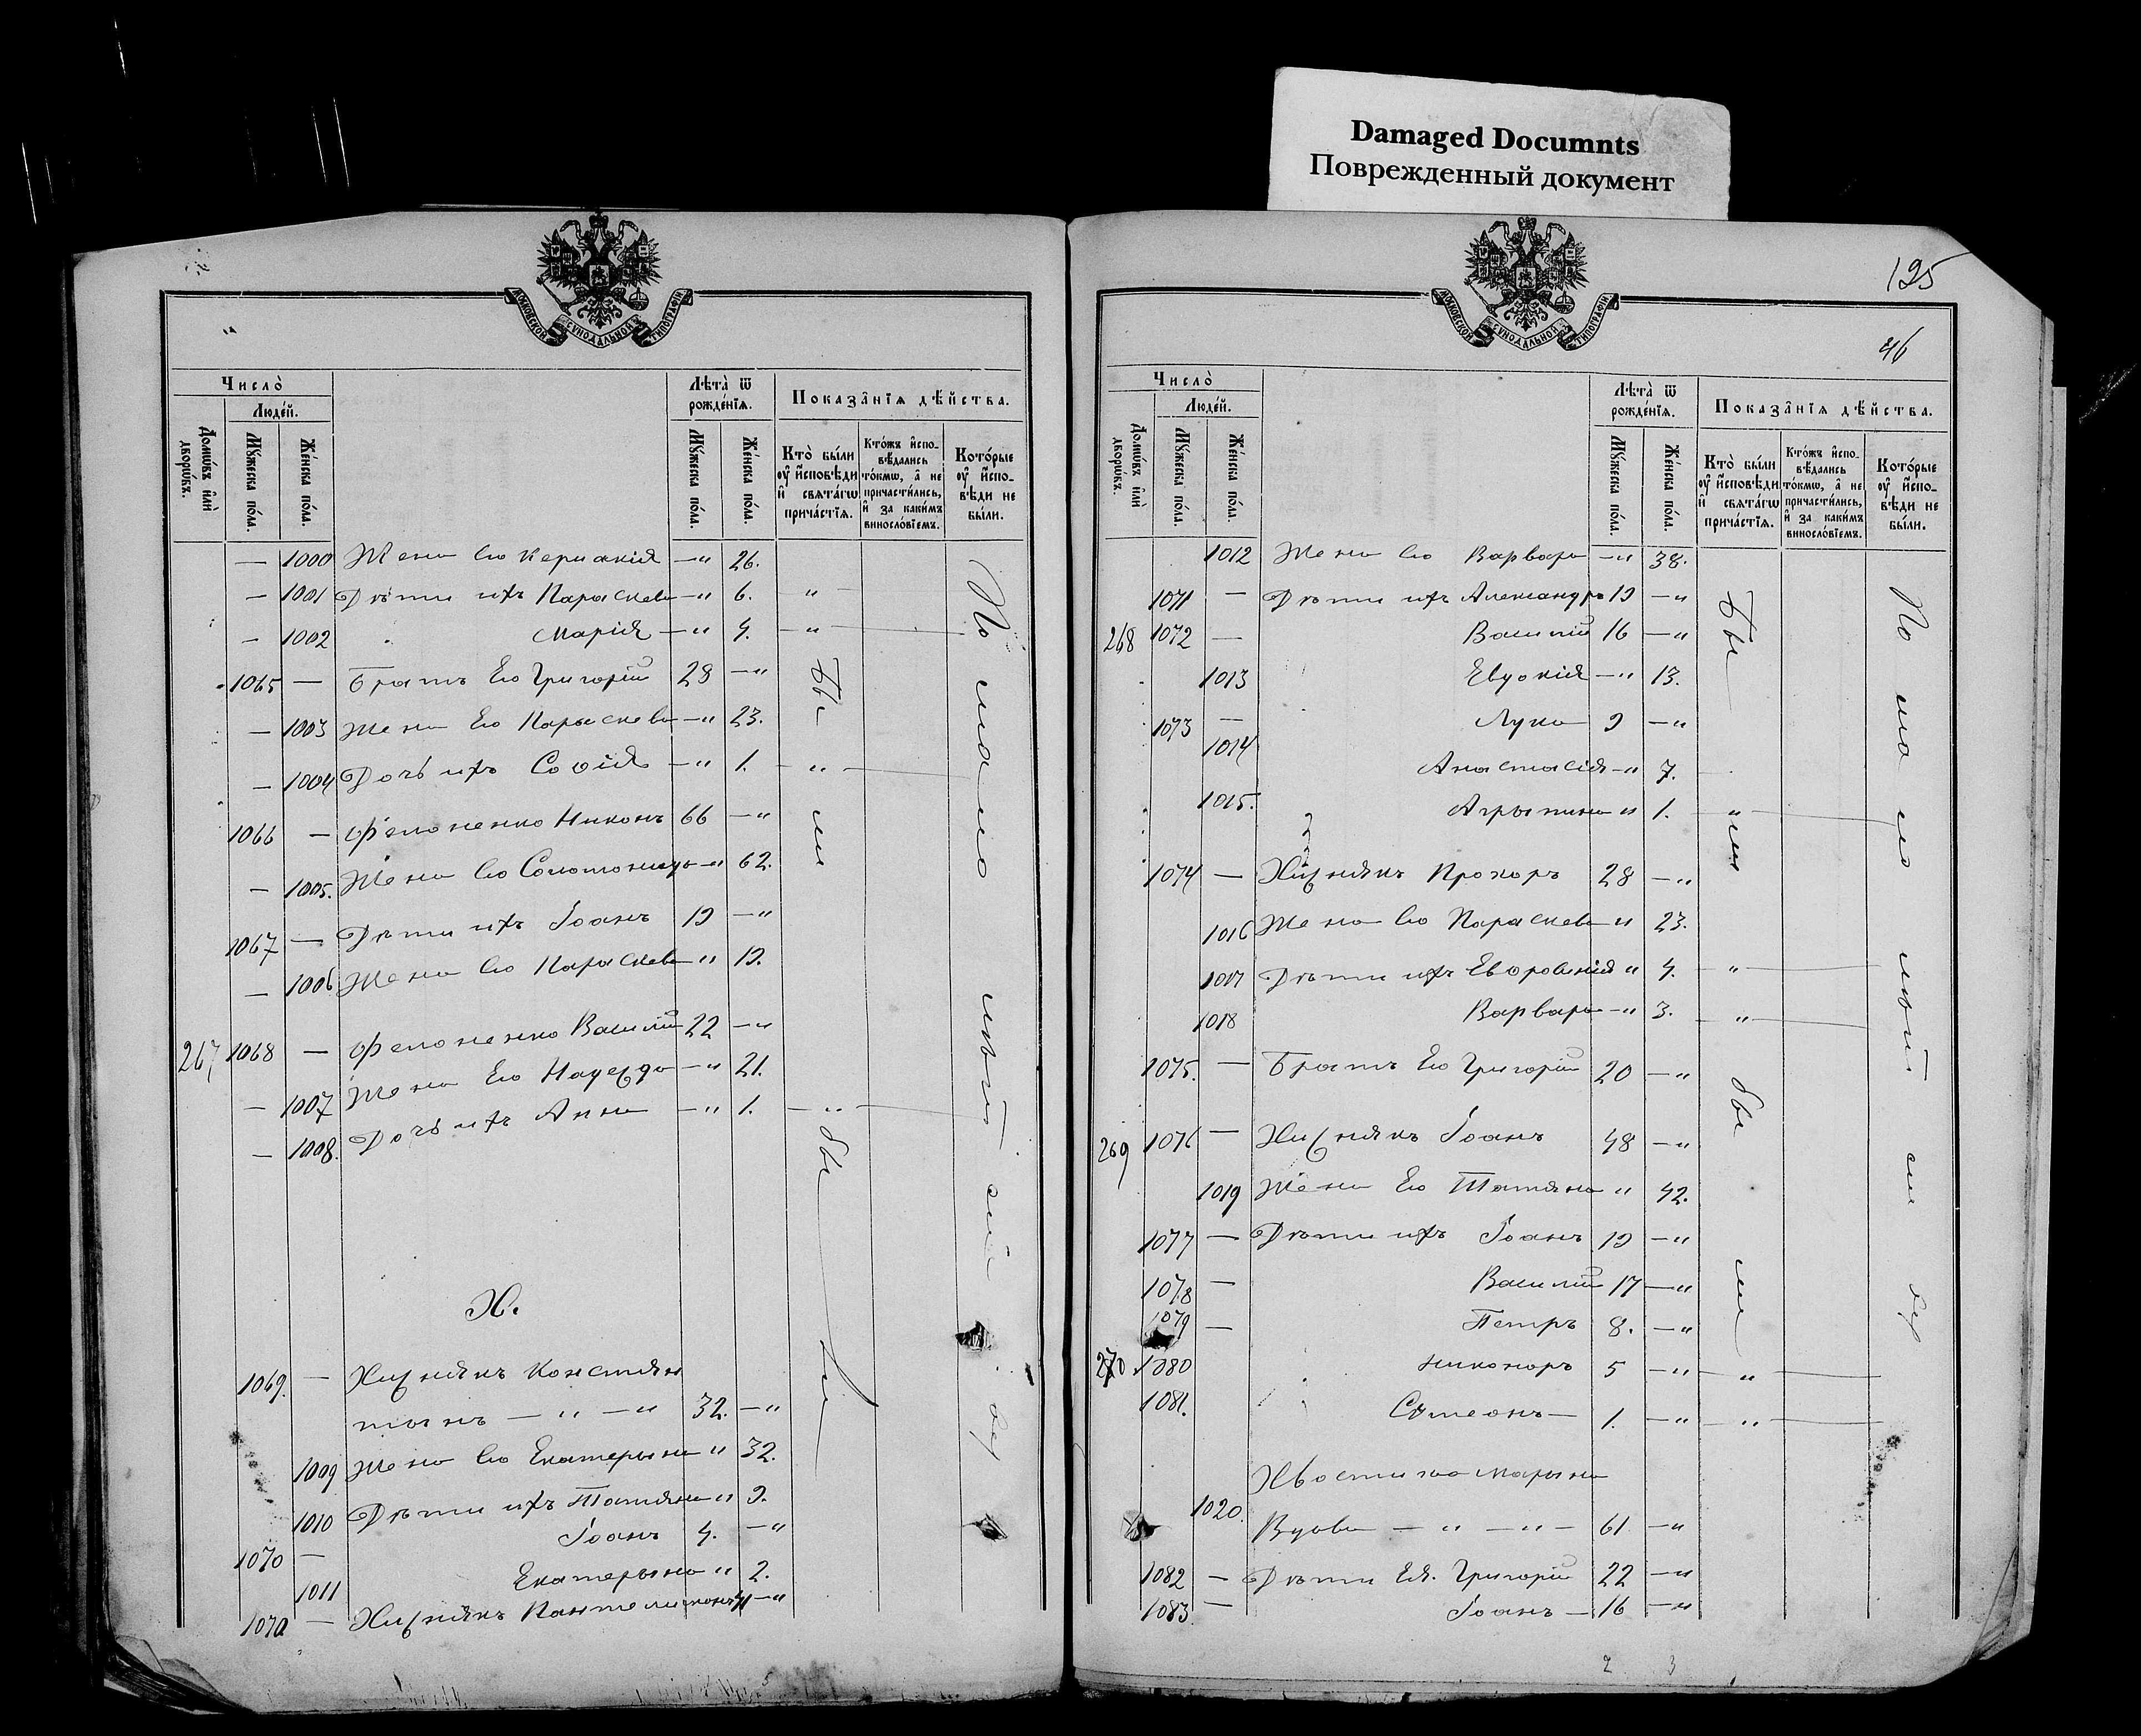 Damaged Documnts
Поврежденный документ
МОСКОВСКОЙ СѴНОДАЛЬНОЙ ТИПОГРАФІИ
Число̀
Людей.
Домѡвъ и҆лѝ дворѡ́въ.
Мꙋ́жеска по́ла.
Же́нска по́ла.
Лѣта̀ ѿ рожде́нїѧ.
Мꙋ́жеска по́ла.
Же́нска по́ла.
Показа̑нїѧ дѣ́йства.
Кто̀ бы́ли оу҆ и҆сповѣди и҆ свѧта́гѡ прича́стїѧ.
Кто́жъ и҆сповѣ́дались то́кмѡ, а҆ не причасти́лись, и҆ за каки́мъ винослѡ́вїемъ.
Кото́рые оу҆ и҆сповѣди не бы́ли.
— 1000 Жена Его Кериакія —„ 26.
— 1001 Дѣти ихъ Параскева —„ 6. „
— 1002 Марія —„ 4. —„
1065 — Братъ Его Григорій 28 —„
— 1003 Жена Его Параскева —„ 23.
— 1004 Дочь ихъ Софія —„ 1. —„
1066 — Филоненко Никонъ 66 —„
— 1005. Жена Его Соломонида —„ 62.
1067 — Дѣти ихъ Іоанъ 19 —„
— 1006 Жена Его Параскева „ 19.
267 1068 — Филоненко Василій 22 —„
— 1007 Жена Его Надежда —„ 21.
— 1008. Дочь ихъ Анна —„ 1. —„
Были
были
По малолѣт
Х.
1069. — Хижнякъ Констян
тынъ —„ —„ 32. —„
1009 Жена Его Екатерына „ 32.
1010 Дѣти ихъ Татіяна „ 9.
1070 — Іоанъ 4. —„
1011 Екатерына „ 2.
1070 — Хижнякъ Пантелимонъ 41 —„
МОСКОВСКОЙ СѴНОДАЛЬНОЙ ТИПОГРАФІИ
125
46
Число̀
Людей.
Домѡвъ и҆лѝ дворѡ́въ.
Мꙋ́жеска по́ла.
Же́нска по́ла.
Лѣта̀ ѿ рожде́нїѧ.
Мꙋ́жеска по́ла.
Же́нска по́ла.
Показа̑нїѧ дѣ́йства.
Кто̀ бы́ли оу҆ и҆сповѣди и҆ свѧта́гѡ прича́стїѧ.
Кто́жъ и҆сповѣ́дались то́кмѡ, а҆ не причасти́лись, и҆ за каки́мъ винослѡ́вїемъ.
Кото́рые оу҆ и҆сповѣди не бы́ли.
1012 Жена Его Варвара —„ 38.
1071 — Дѣти ихъ Александръ 19 —„
268 1072 — Василій 16 —„
1013 Евдокія —„ 13.
1073 — Лука 9 —„
1014 Анастасія —„ 7.
1015. Агрыпина „ 1. „
1074 — Хижнякъ Прохоръ 28 —„
1016 Жена Его Параскева „ 23.
1017 Дѣти ихъ Евфросинія „ 4. „
1018 Варвара —„ 3. „
1075. — Братъ Его Григорій 20 —„
269 1076 — Хижнякъ Іоанъ 48 —„
1019 Жена Его Татіяна „ 42.
1077 — Дѣти ихъ Іоанъ 19 —„
1078 — Василій 17 —„
1079 — Петръ 8. —„
270 1080 Никоноръ 5 —„ —„
1081. Сѵмеонъ — 1. —„ —„
Хвостикова Марына
1020. Вдова —„ —„ — 61 —„
1082 — Дѣти Ея. Григорій 22 —„
1083 — Іоанъ — 16 —„
Были
были
По малолѣт
2 3